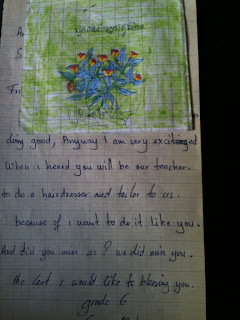 doing good, Anyway I am very excitinged
When I heard you will be our teacher.
to do a hairdresser and tailor to us.
because of i want to do it like you.
And did you miss us? we did miss you.
the last i would like to blessing you.
grade 6